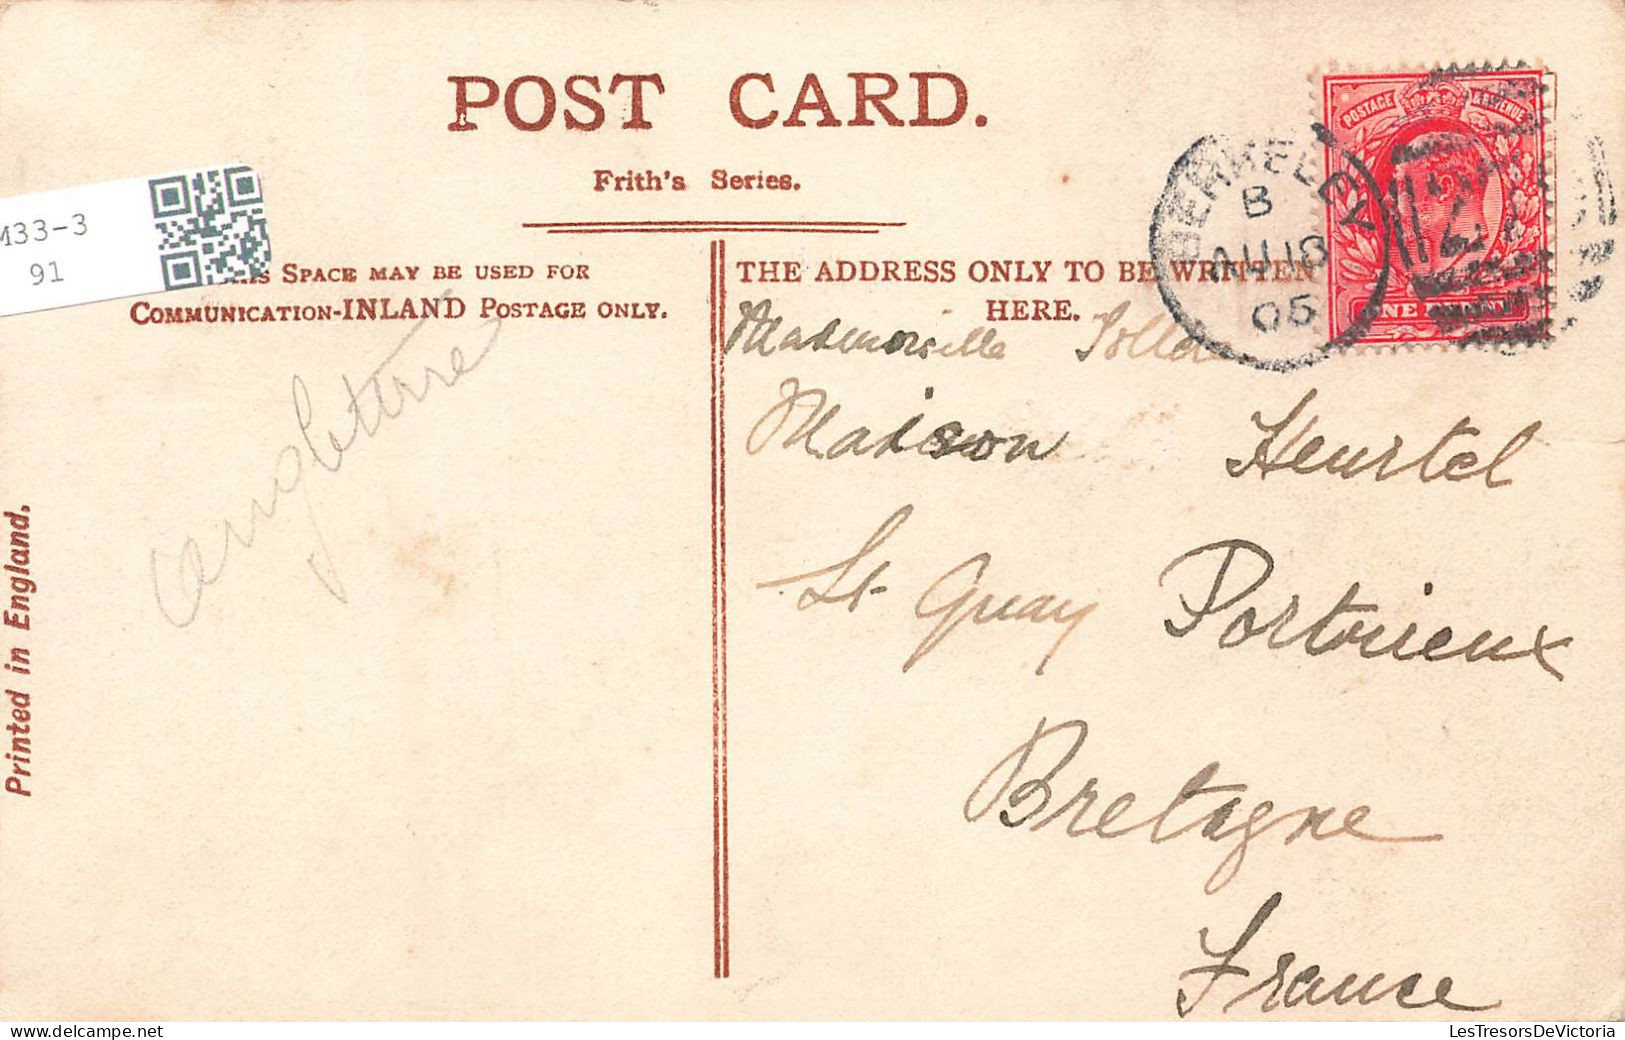 POST CARD.
Frith's Series.
THIS SPACE MAY BE USED FOR
COMMUNICATION-INLAND POSTAGE ONLY.
THE ADDRESS ONLY TO BE WRITTEN
HERE.
M33-3
91
POSTAGE REVENUE
ONE PENNY
BERKELEY
B
AU 18
05
Angleterre
Mademoiselle
Maison Heurtel
St Quay Portrieux
Bretagne
France
Printed in England.
LesTresorsDeVictoria